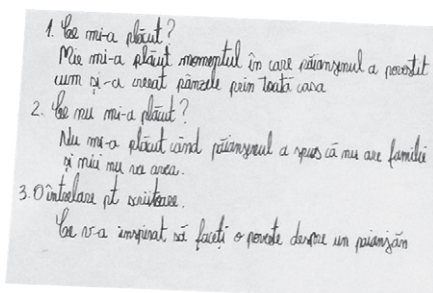 1. Ce mi-a plăcut?
Mie mi-a plăcut momentul în care păianjenul a povestit
cum și-a creeat pânzele prin toată casa
2. Ce nu mi-a plăcut?
Nu mi-a plăcut când păianjenul a spus că nu are familie
și nici nu va avea.
3. O întrebare pt scriitoare.
Ce v-a inspirat să faceți o poveste despre un paianjăn